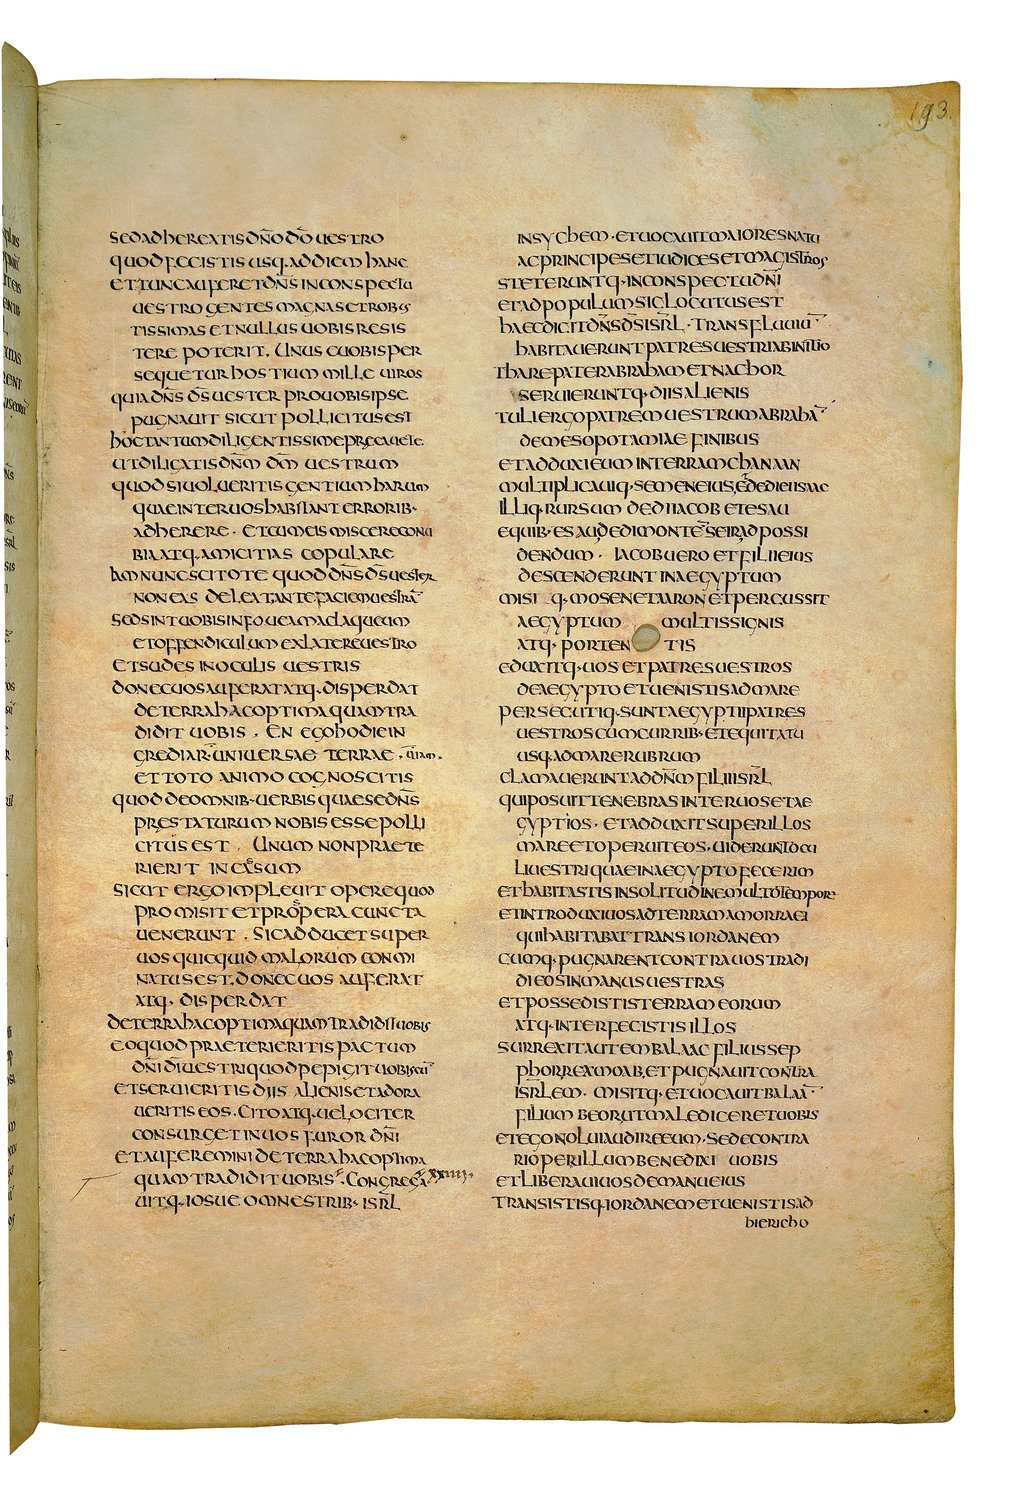 193.
SED ADHEREATIS DN̄O DŌ UESTRO
QUOD FECISTIS USQ· AD DIEM HANC
ET TUNC AUFERET DN̄S IN CONSPECTU
UESTRO GENTES MAGNAS ET ROBUS
TISSIMAS ET NULLUS UOBIS RESIS
TERE POTERIT. UNUS E UOBIS PER
SEQUETUR HOSTIUM MILLE UIROS
QUIA DN̄S DS̄ UESTER PRO UOBIS IPSE
PUGNAUIT SICUT POLLICITUS EST
HOC TANTUM DILIGENTISSIME PRECAUETE
UT DILIGATIS DN̄M DM̄ UESTRUM
QUOD SI UOLUERITIS GENTIUM HARUM
QUAE INTER UOS HABITANT ERRORIB·
ADHERERE · ET CUM EIS MISCERE CONU
BIA ATQ· AMICITIAS COPULARE
IAM NUNC SCITOTE QUOD DN̄S DS̄ UESTER
NON EAS DELEAT ANTE FACIEM UESTRĀ
SED SINT UOBIS IN FOUEAM AC LAQUEUM
ET OFFENDICULUM EX LATERE UESTRO
ET SUDES IN OCULIS UESTRIS
DONEC UOS AUFERAT ATQ· DISPERDAT
DE TERRA HAC OPTIMA QUAM TRA
DIDIT UOBIS . EN EGO HODIE IN
GREDIAR UNIUERSAE TERRAE · UIAM·
ET TOTO ANIMO COGNOSCITIS
QUOD DE OMNIB· UERBIS QUAE SE DN̄S
PRESTATURUM NOBIS ESSE POLLI
CITUS EST . UNUM NON PRAETE
RIERIT IN CASSUM
SICUT ERGO IMPLEUIT OPERE QUOD
PROMISIT ET PROSPERA CUNCTA
UENERUNT . SIC ADDUCET SUPER
UOS QUICQUID MALORUM CONMI
NATUS EST. DONEC UOS AUFERAT
ATQ· DISPERDAT
DE TERRA HAC OPTIMA QUAM TRADIDIT UOBIS
EO QUOD PRAETERIERITIS PACTUM
DN̄I DĪ UESTRI QUOD PEPIGIT UOBISCŪ
ET SERUIERITIS DIIS ALIENIS ET ADORA
UERITIS EOS. CITO ATQ· UELOCITER
CONSURGET IN UOS FUROR DN̄I
ET AUFEREMINI DE TERRA HAC OPTIMA
QUAM TRADIDIT UOBIS · CONGREGA XXIIII.
UITQ· IOSUE OMNES TRIB· ISRL̄
IN SYCHEM · ET UOCAUIT MAIORES NATU
AC PRINCIPES ET IUDICES ET MAGISTROS
STETERUNTQ· IN CONSPECTU DN̄I
ET AD POPULUM SIC LOCUTUS EST
HAEC DICIT DN̄S DS̄ ISRL̄ · TRANS FLUUIŪ
HABITAUERUNT PATRES UESTRI AB INITIO
THARE PATER ABRAHAM ET NACHOR
SERUIERUNTQ· DIIS ALIENIS
TULI ERGO PATREM UESTRUM ABRAHĀ
DE MESOPOTAMIAE FINIBUS
ET ADDUXI EUM IN TERRAM CHANAAN
MULTIPLICAUIQ· SEMEN EIUS, ET DEDI EI ISAAC
ILLIQ· RURSUM DEDI IACOB ET ESAU
E QUIB· ESAU DEDI MONTĒ SEIR AD POSSI
DENDUM · IACOB UERO ET FILII EIUS
DESCENDERUNT IN AEGYPTUM
MISI Q· MOSEN ET AARON ET PERCUSSIT
AEGYPTUM MULTIS SIGNIS
ATQ· PORTEN TIS
EDUXITQ· UOS ET PATRES UESTROS
DE AEGYPTO ET UENISTIS AD MARE
PERSECUTIQ· SUNT AEGYPTII PATRES
UESTROS CUM CURRIB· ET EQUITATU
USQ· AD MARE RUBRUM
CLAMAUERUNT AD DN̄M FILII ISRL̄
QUI POSUIT TENEBRAS INTER UOS ET AE
GYPTIOS · ET ADDUXIT SUPER ILLOS
MARE ET OPERUIT EOS · UIDERUNT OCU
LI UESTRI QUAE IN AEGYPTO FECERIM
ET HABITASTIS IN SOLITUDINE MULTO TEMPORE
ET INTRODUXI UOS AD TERRAM AMORRAEI
QUI HABITABAT TRANS IORDANEM
CUMQ· PUGNARENT CONTRA UOS TRADI
DI EOS IN MANUS UESTRAS
ET POSSEDISTIS TERRAM EORUM
ATQ· INTERFECISTIS ILLOS
SURREXIT AUTEM BALAAC FILIUS SEP
PHOR REX MOAB, ET PUGNAUIT CONTRA
ISRL̄EM · MISITQ· ET UOCAUIT BALAĀ
FILIUM BEOR UT MALEDICERET UOBIS
ET EGO NOLUI AUDIRE EUM, SED E CONTRA
RIO PER ILLUM BENEDIXI UOBIS
ET LIBERAUI UOS DE MANU EIUS
TRANSISTISQ· IORDANEM ET UENISTIS AD
HIERICHO